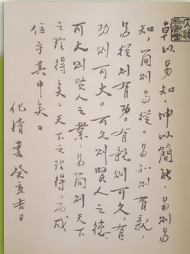 乾以易知,坤以簡能,易則易
知,簡則易從。易知則有親,
易從則有功。有親則可久,有
功則可大。可久則賢人之德
可大則賢人之業,易簡則天下
之理得矣。天下之理得,而成
位乎其中矣。
書癸亥吉日